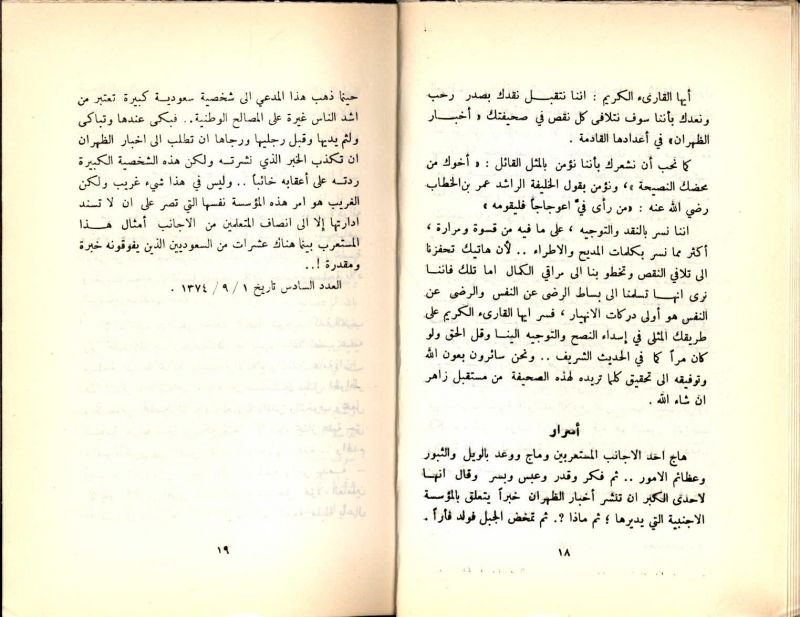 أيها القارىء الكريم : اننا نتقبل نقدك بصدر رحب
ونعدك بأننا سوف نتلافى كل نقص في صحيفتك « أخبار
الظهران» في أعدادها القادمة .
كما نحب أن نشعرك بأننا نؤمن بالمثل القائل : « أخوك من
محضك النصيحة »، ونؤمن بقول الخليفة الراشد عمر بن الخطاب
رضي الله عنه : «من رأى فيّ اعوجاجاً فليقومه »
اننا نسر بالنقد والتوجيه ، على ما فيه من قسوة ومرارة ،
أكثر مما نسر بكلمات المديح والاطراء .. لأن هاتيك تحفزنا
الى تلافي النقص وتخطو بنا الى مراقي الكمال اما تلك فاننا
نرى انها تسلمنا الى بساط الرضى عن النفس والرضى عن
النفس هو أولى دركات الانهيار ، فسر ايها القارىء الكريم على
طريقك المثلى في إسداء النصح والتوجيه الينا وقل الحق ولو
كان مراً كما في الحديث الشريف .. ونحن سائرون بعون الله
وتوفيقه الى تحقيق كلما تريده لهذه الصحيفة من مستقبل زاهر
ان شاء الله .
أسرار
هاج احد الاجانب المستعربين وماج ووعد بالويل والثبور
وعظائم الامور .. ثم فكر وقدر وعبس وبسر وقال انها
لاحدى الكبر ان تنشر أخبار الظهران خبراً يتعلق بالمؤسسة
الاجنبية التي يديرها ؛ ثم ماذا ?. ثم تمخض الجبل فولد فأراً .
١٨
حينما ذهب هذا المدعي الى شخصية سعودية كبيرة تعتبر من
اشد الناس غيرة على المصالح الوطنية.. فبكى عندها وتباكى
ولثم يديها وقبل رجليها ورجاها ان تطلب الى اخبار الظهران
ان تكذب الخبر الذي نشرته ولكن هذه الشخصية الكبيرة
ردته على أعقابه خائباً .. وليس في هذا شيء غريب ولكن
الغريب هو امر هذه المؤسسة نفسها التي تصر على ان لا تسند
ادارتها إلا الى انصاف المتعلمين من الاجانب أمثال هذا
المستعرب بينما هناك عشرات من السعوديين الذين يفوقونه خبرة
ومقدرة !..
العدد السادس تاريخ ١ / ٩ / ١٣٧٤ .
١٩